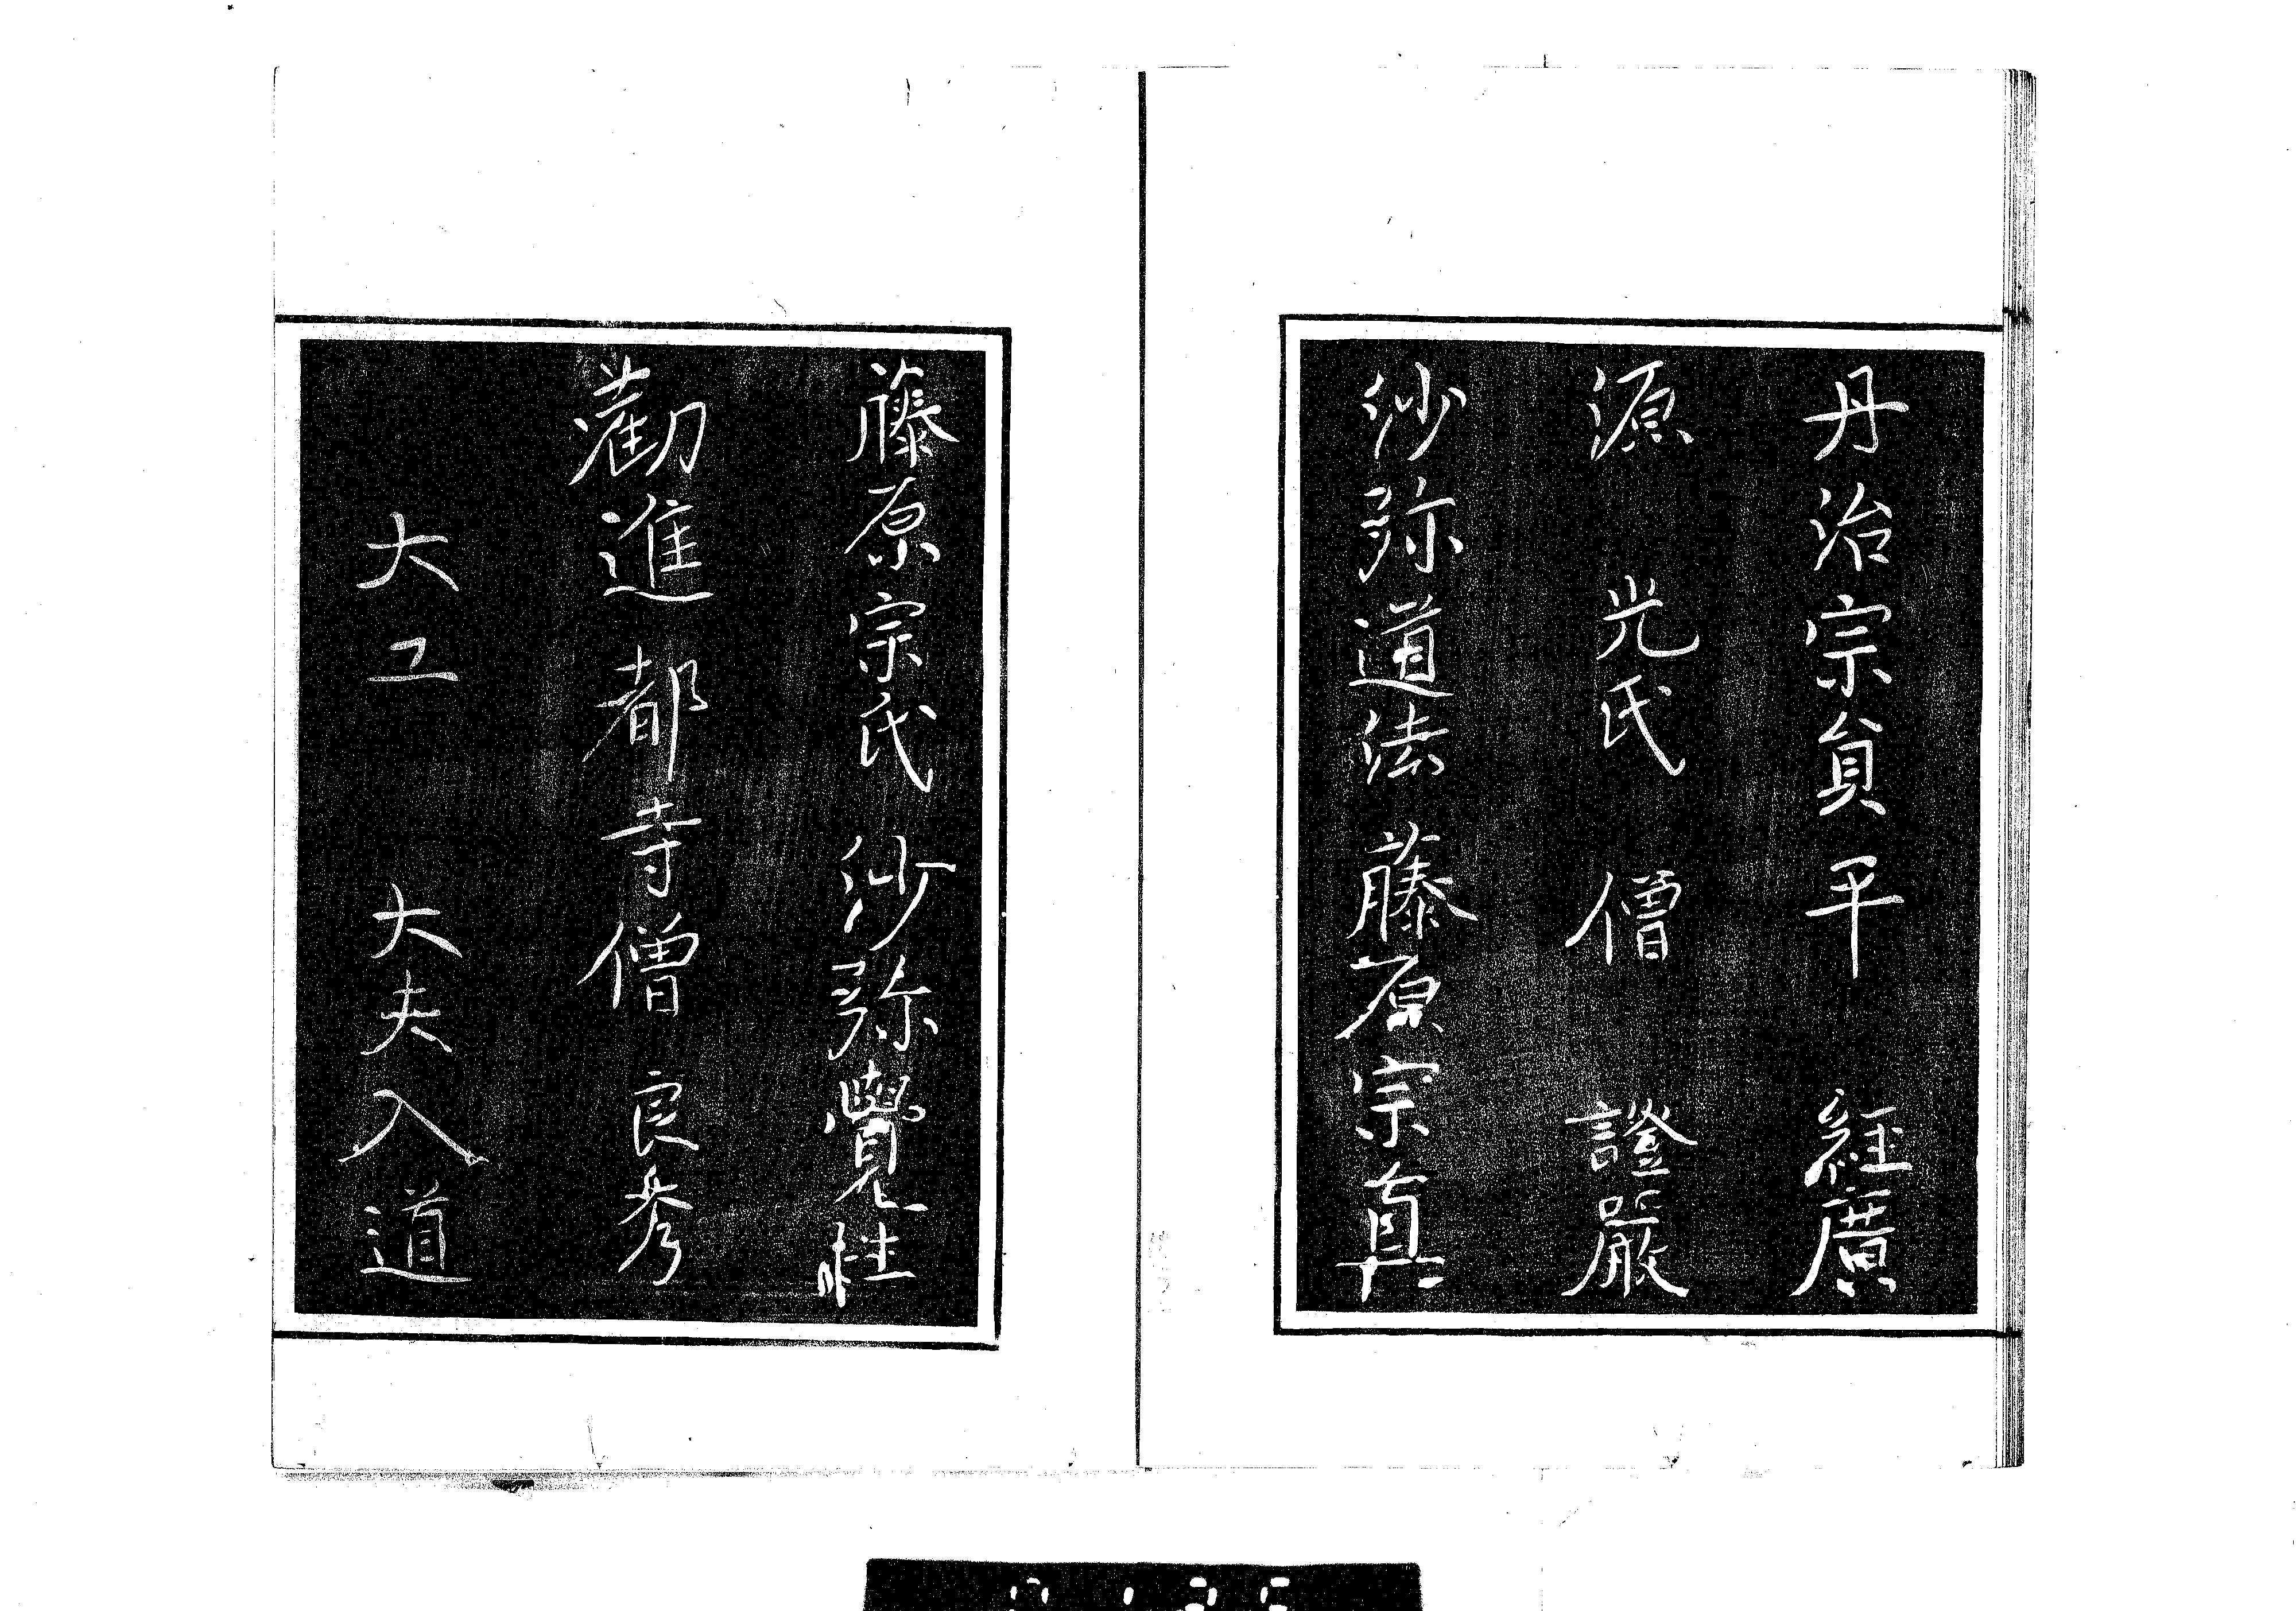 丹治宗貞 平 経廣
源 光氏 僧 證嚴
沙弥道法 藤原宗真
藤原宗氏 沙弥覺性
勸進都寺僧 良秀
大工 大夫入道